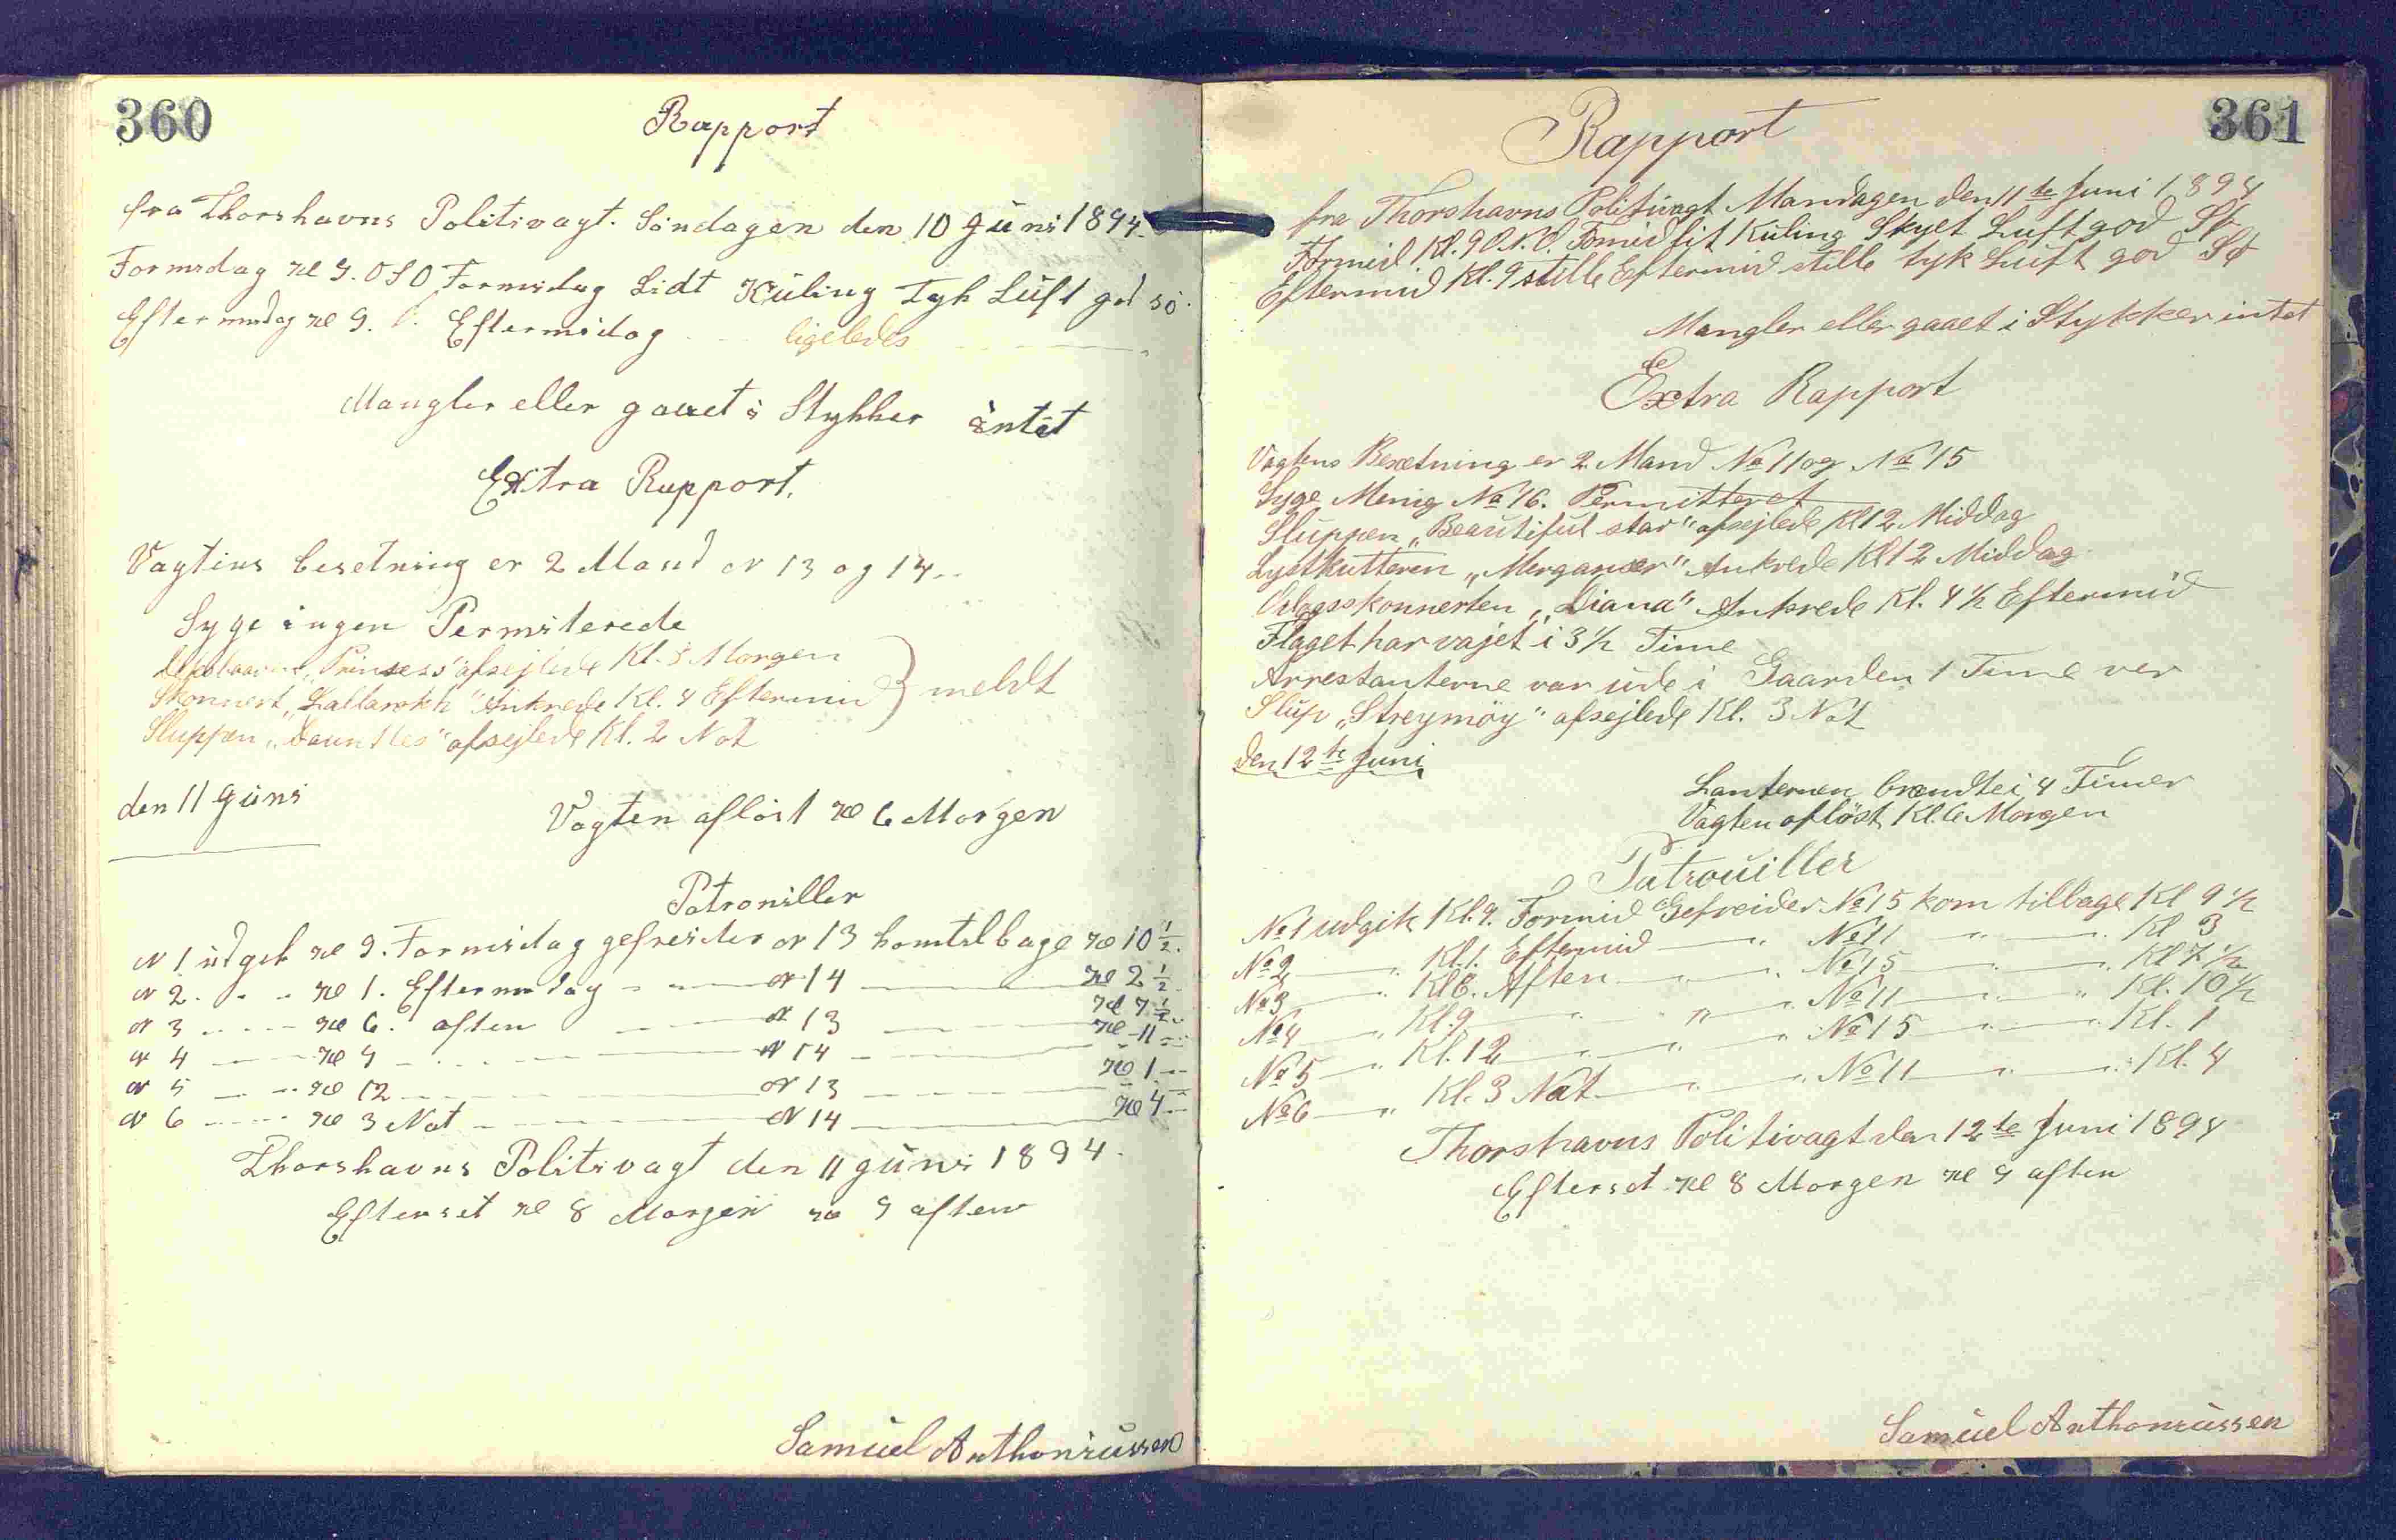 360
Rapport
fra Thorshavns Politivagt. Söndagen den 10 Juni 1894.
Formidag Kl 9. OSO Formidag Lidt Küling Tyk Lüft god sö.
Eftermidag Kl 9. Eftermidag ligeledes
Mangler eller gaaet i Stykker intet
Extra Rapport.
Vagtens besetning er 2 Mand N 13 og 14
Syge ingen Permiterede
"Prinsess" afsejlede Kl. 3 Morgen
Skonnert "Lallarokh" Ankrede Kl. 4 Eftermid } meldt
Sluppen "Dauntles" afsejlede Kl. 2 Nat
den 11 Juni
Vagten aflöst Kl 6 Morgen
Patroniller
N 1 üdgik Kl 9. Formidag gefreider N 13 komtilbage Kl 10 1/2.
N 2 Kl 1. Eftermidag N 14 Kl 2 1/2
N 3 Kl 6. aften N 13 Kl 7 1/2
N 4 Kl 9 N 14 Kl 11
N 5 Kl 12 N 13 Kl 1
N 6 Kl 3 Nat N 14 Kl 4
Thorshavns Politivagt den 11 Juni 1894.
Efterset Kl 8 Morgen Kl 9 aften
Samüel Anthoniüssen
361
Rapport
fra Thorshavns Politivagt Mandagen den 11te Juni 1894
Formid Kl. 9 O.N.O. Formid lit Küling Skyet Luft god Sø
Eftermid Kl. 9 stille Eftermid stille tyk Luft god Sø
Mangler eller gaaet i Stykker intet
Extra Rapport
Vagtens Besætning er 2 Mand No 11 og No 15
Syge Menig No 16. Permitteret
Sluppen "Beautiful star" afsejlede Kl 12 Middag
Lystkutteren "Merganser" Ankrede Kl 12 Middag
Orlogsskonnerten "Diana" Ankrede Kl. 4 1/2 Eftermid
Flaget har vajet i 3 1/2 Time
Arrestanterne var üde i Gaarden 1 Time ver
Slup "Streymöy" afsejlede Kl. 3 Nat
Den 12te Juni
Lanternen brændte i 4 Timer
Vagten aflöst Kl. 6 Morgen
Patrouiller
No 1 udgik Kl. 9. Formid Gefreider No 15 kom tilbage Kl 9 1/2
No 2 " Kl. 1. Eftermid " No 11 " " Kl 3
No 3 " Kl 6. Aften " No 15 " " Kl 7 1/2
No 4 " Kl. 9 " " No 11 " " Kl. 10 1/2
No 5 " Kl. 12 " " " No 15 " " Kl. 1
No 6 " Kl. 3 Nat " " No 11 " " Kl. 4
Thorshavns Politivagt den 12te Juni 1894
Efterset Kl 8 Morgen Kl 9 aften
Samüel Anthoniüssen